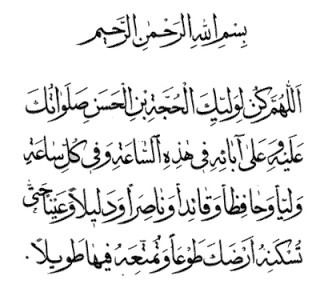 بِسْمِ اللهِ الرَّحْمٰنِ الرَّحيمِ
اَللّٰهُمَّ كُنْ لِوَلِيِّكَ الْحُجَّةِ بْنِ الْحَسَنِ صَلَواتُكَ
عَلَيْهِ وَعَلىٰ آبائِهِ في هٰذِهِ السّاعَةِ وَفي كُلِّ ساعَةٍ
وَلِيّاً وَحافِظاً وَقائِداً وَناصِراً وَدَليلاً وَعَيْناً حَتّىٰ
تُسْكِنَهُ اَرْضَكَ طَوْعاً وَتُمَتِّعَهُ فيها طَويلاً.